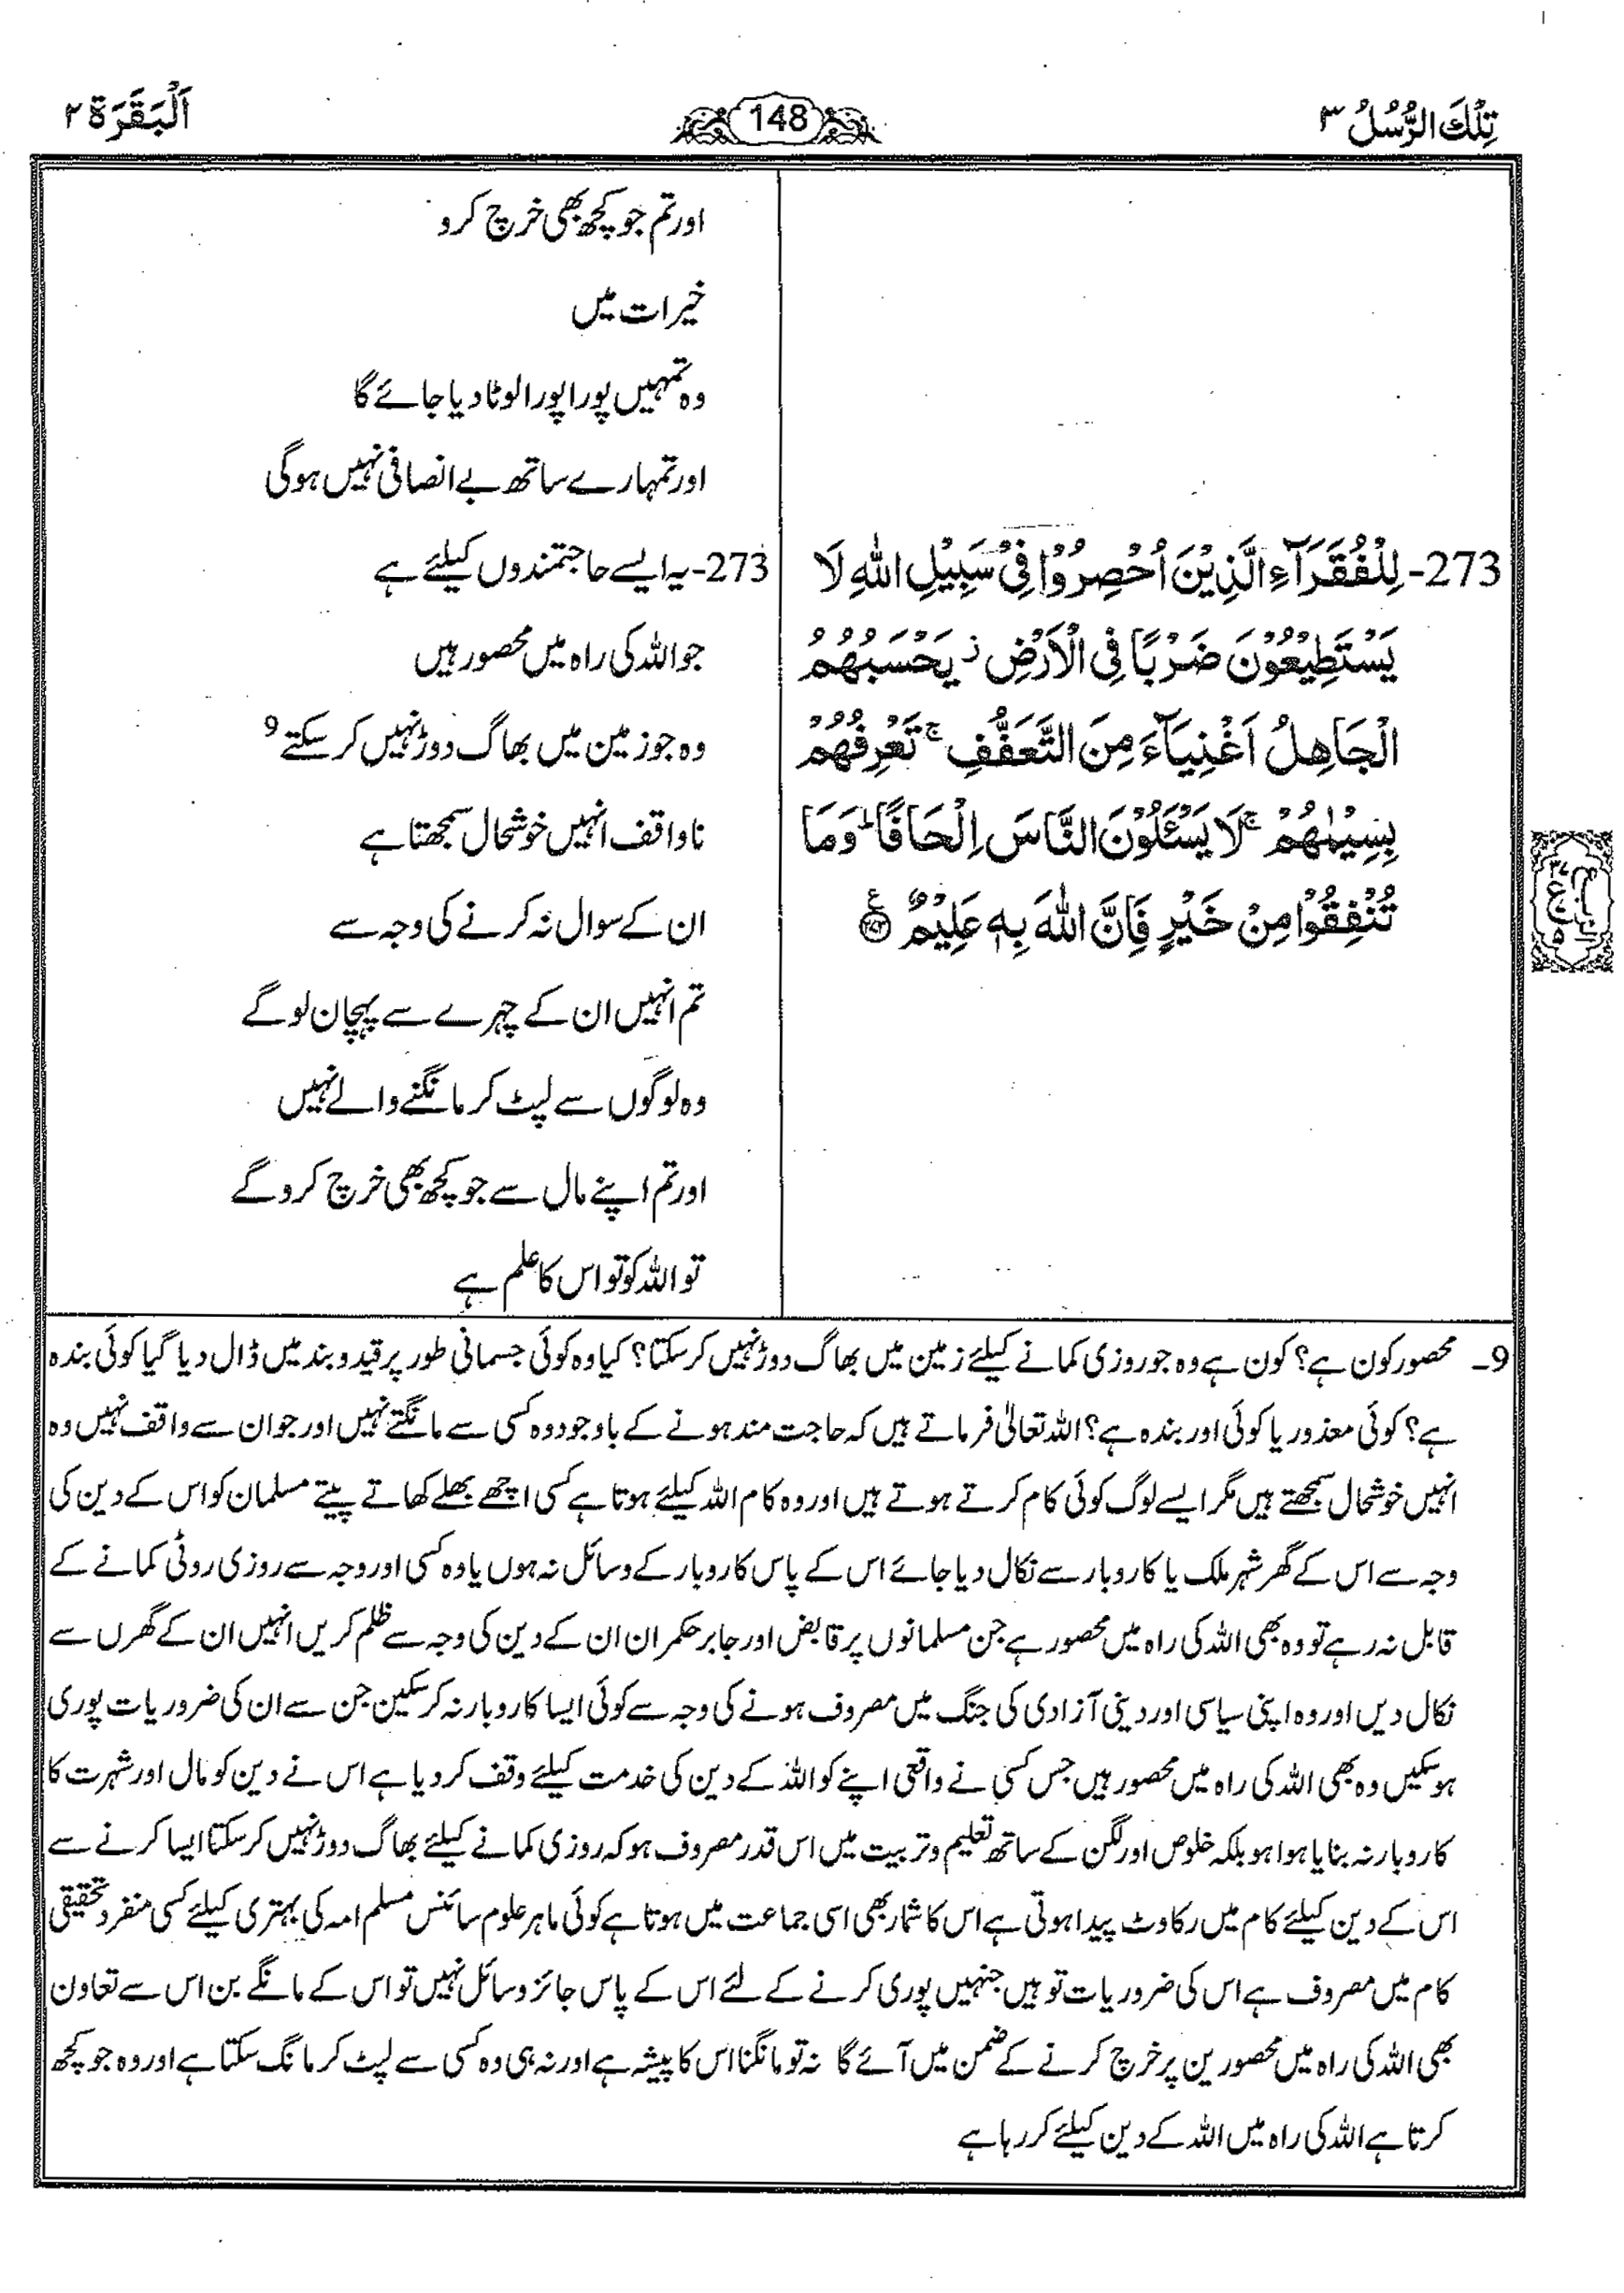 تِلْكَ الرُّسُلُ ۳
148
اَلْبَقَرَة ۲
اور تم جو کچھ بھی خرچ کرو
خیرات میں
وہ تمہیں پورا پورا لوٹا دیا جائے گا
اور تمہارے ساتھ بے انصافی نہیں ہوگی
273- لِلْفُقَرَآءِ الَّذِيْنَ اُحْصِرُوْا فِيْ سَبِيْلِ اللّٰهِ لَا
يَسْتَطِيْعُوْنَ ضَرْبًا فِي الْاَرْضِ ز يَحْسَبُهُمُ
الْجَاهِلُ اَغْنِيَآءَ مِنَ التَّعَفُّفِ ۚ تَعْرِفُهُمْ
بِسِيْمٰهُمْ ۚ لَا يَسْـَٔلُوْنَ النَّاسَ اِلْحَافًا ؕ وَمَا
تُنْفِقُوْا مِنْ خَيْرٍ فَاِنَّ اللّٰهَ بِهٖ عَلِيْمٌ ﴿۲۷۳﴾
273- یہ ایسے حاجتمندوں کیلئے ہے
جو اللہ کی راہ میں محصور ہیں
وہ جو زمین میں بھاگ دوڑ نہیں کر سکتے 9
ناواقف انہیں خوشحال سمجھتا ہے
ان کے سوال نہ کرنے کی وجہ سے
تم انہیں ان کے چہرے سے پہچان لو گے
وہ لوگوں سے لپٹ کر مانگنے والے نہیں
اور تم اپنے مال سے جو کچھ بھی خرچ کرو گے
تو اللہ کو تو اس کا علم ہے
9۔ محصور کون ہے؟ کون ہے وہ جو روزی کمانے کیلئے زمین میں بھاگ دوڑ نہیں کر سکتا؟ کیا وہ کوئی جسمانی طور پر قید و بند میں ڈال دیا گیا کوئی بندہ
ہے؟ کوئی معذور یا کوئی اور بندہ ہے؟ اللہ تعالیٰ فرماتے ہیں کہ حاجت مند ہونے کے باوجود وہ کسی سے مانگتے نہیں اور جو ان سے واقف نہیں وہ
انہیں خوشحال سمجھتے ہیں مگر ایسے لوگ کوئی کام کرتے ہوتے ہیں اور وہ کام اللہ کیلئے ہوتا ہے کسی اچھے بھلے کھاتے پیتے مسلمان کو اس کے دین کی
وجہ سے اس کے گھر شہر ملک یا کاروبار سے نکال دیا جائے اس کے پاس کاروبار کے وسائل نہ ہوں یا وہ کسی اور وجہ سے روزی روٹی کمانے کے
قابل نہ رہے تو وہ بھی اللہ کی راہ میں محصور ہے جن مسلمانوں پر قابض اور جابر حکمران ان کے دین کی وجہ سے ظلم کریں انہیں ان کے گھروں سے
نکال دیں اور وہ اپنی سیاسی اور دینی آزادی کی جنگ میں مصروف ہونے کی وجہ سے کوئی ایسا کاروبار نہ کر سکیں جن سے ان کی ضروریات پوری
ہو سکیں وہ بھی اللہ کی راہ میں محصور ہیں جس کسی نے واقعی اپنے کو اللہ کے دین کی خدمت کیلئے وقف کر دیا ہے اس نے دین کو مال اور شہرت کا
کاروبار نہ بنایا ہوا ہو بلکہ خلوص اور لگن کے ساتھ تعلیم و تربیت میں اس قدر مصروف ہو کہ روزی کمانے کیلئے بھاگ دوڑ نہیں کر سکتا ایسا کرنے سے
اس کے دین کیلئے کام میں رکاوٹ پیدا ہوتی ہے اس کا شمار بھی اسی جماعت میں ہوتا ہے کوئی ماہر علوم سائنس مسلم امہ کی بہتری کیلئے کسی منفرد تحقیقی
کام میں مصروف ہے اس کی ضروریات تو ہیں جنہیں پوری کرنے کے لئے اس کے پاس جائز وسائل نہیں تو اس کے مانگے بن اس سے تعاون
بھی اللہ کی راہ میں محصورین پر خرچ کرنے کے ضمن میں آئے گا نہ تو مانگنا اس کا پیشہ ہے اور نہ ہی وہ کسی سے لپٹ کر مانگ سکتا ہے اور وہ جو کچھ
کرتا ہے اللہ کی راہ میں اللہ کے دین کیلئے کر رہا ہے